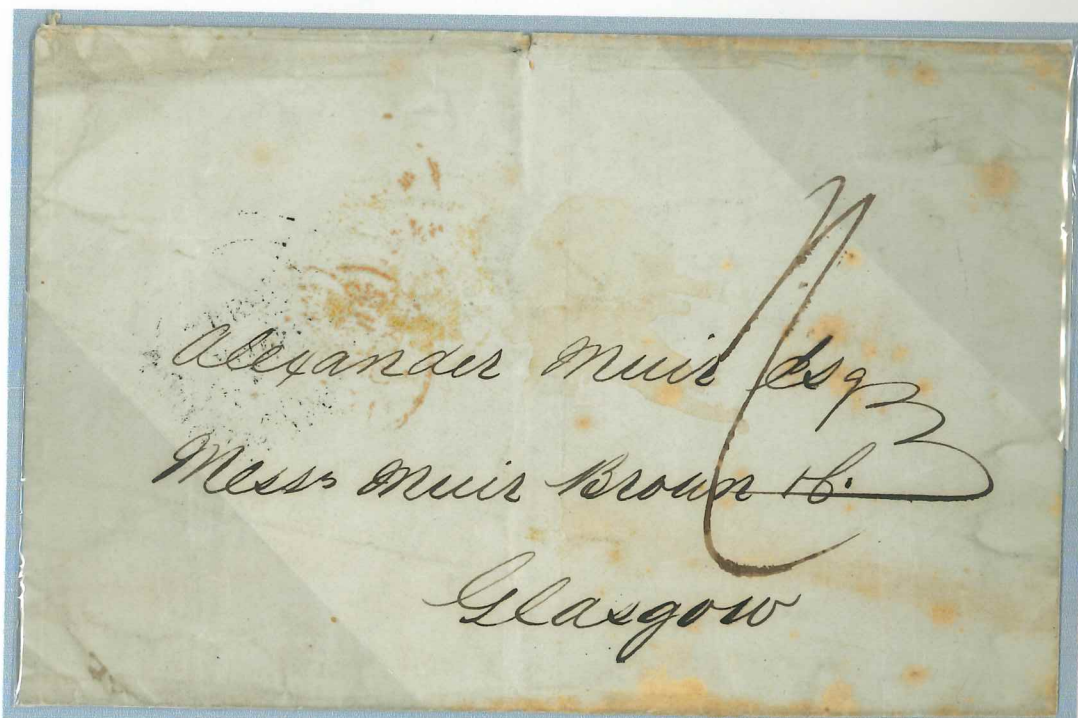 Alexander Muir Esq
Messrs Muir Brown & Co.
Glasgow